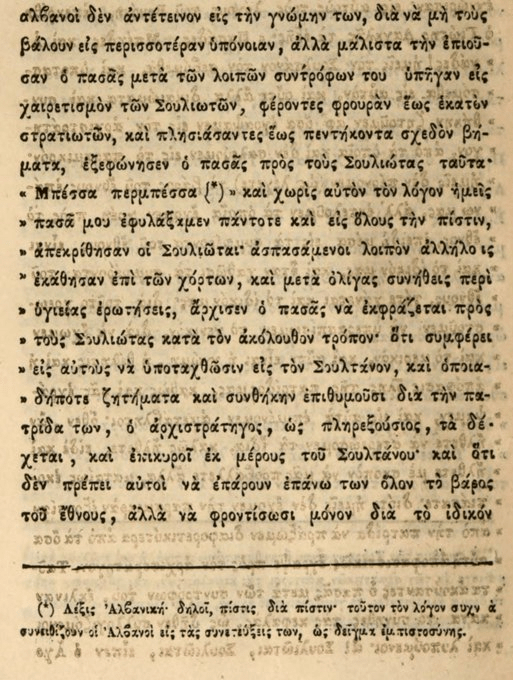 αλβανοὶ δὲν ἀντέτεινον εἰς τὴν γνώμην των, διὰ νὰ μὴ τοὺς
βάλουν εἰς περισσοτέραν ὑπόνοιαν, ἀλλὰ μάλιστα τὴν ἐπιοῦ-
σαν ὁ πασᾶς μετὰ τῶν λοιπῶν συντρόφων του ὑπῆγαν εἰς
χαιρετισμὸν τῶν Σουλιωτῶν, φέροντες φρουρὰν ἕως ἑκατὸν
στρατιωτῶν, καὶ πλησιάσαντες ἕως πεντήκοντα σχεδὸν βή-
ματα, ἐξεφώνησεν ὁ πασᾶς πρὸς τοὺς Σουλιώτας ταῦτα·
« Μπέσσα περμπέσσα (*) » καὶ χωρὶς αὐτὸν τὸν λόγον ἡμεῖς
» πασᾶ μου ἐφυλάξαμεν πάντοτε καὶ εἰς ὅλους τὴν πίστιν,
» ἀπεκρίθησαν οἱ Σουλιῶται· ἀσπασάμενοι λοιπὸν ἀλλήλο ις
» ἐκάθησαν ἐπὶ τῶν χόρτων, καὶ μετὰ ὀλίγας συνήθεις περὶ
» ὑγιείας ἐρωτήσεις, ἄρχισεν ὁ πασᾶς νὰ ἐκφράζεται πρὸς
» τοὺς Σουλιώτας κατὰ τὸν ἀκόλουθον τρόπον· ὅτι συμφέρει
» εἰς αὐτοὺς νὰ ὑποταχθῶσιν εἰς τὸν Σουλτάνον, καὶ ὁποια-
» δήποτε ζητήματα καὶ συνθήκην ἐπιθυμοῦσι διὰ τὴν πα-
τρίδα των, ὁ ἀρχιστράτηγος, ὡς πληρεξούσιος, τὰ δέ-
χεται, καὶ ἐπικυροῖ ἐκ μέρους τοῦ Σουλτάνου· καὶ ὅτι
δὲν πρέπει αὐτοὶ νὰ ἐπάρουν ἐπάνω των ὅλον τὸ βάρος
τοῦ ἔθνους, ἀλλὰ νὰ φροντίσωσι μόνον διὰ τὸ ἰδικόν
(*) Λέξις Ἀλβανική· δηλοῖ, πίστις διὰ πίστιν· τοῦτον τὸν λόγον συχν ὰ
συνειθίζουν οἱ Ἀλβανοὶ εἰς τὰς συνεντεύξεις των, ὡς δεῖγμα ἐμπιστοσύνης.